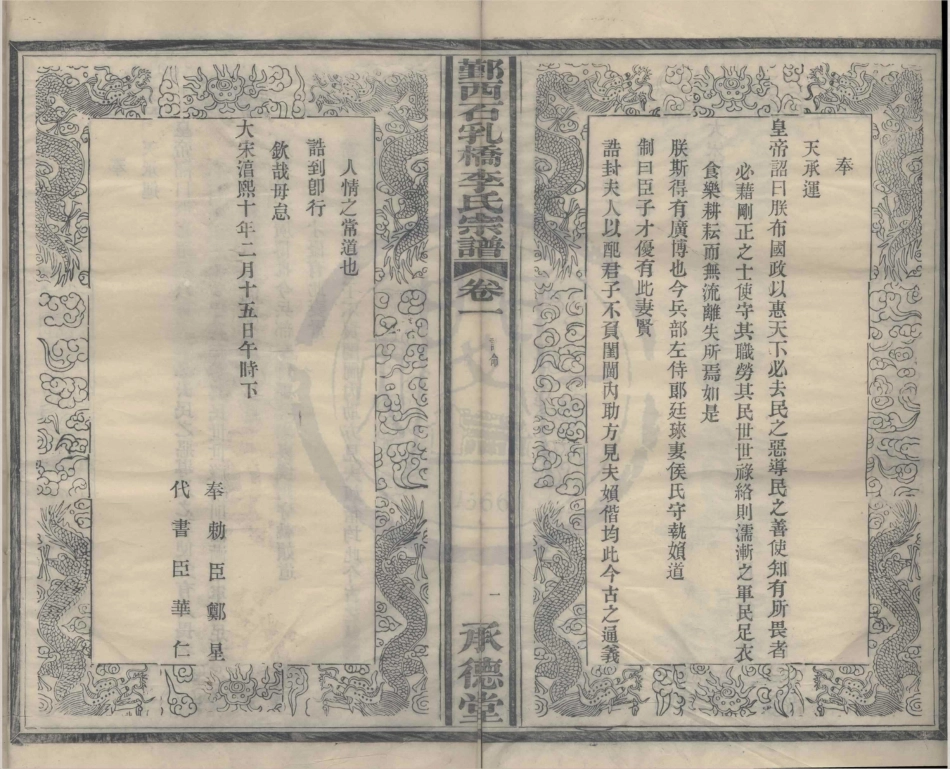 奉
天承運
皇帝詔曰朕布國政以惠天下必去民之惡導民之善使知有所畏者
必藉剛正之士使守其職勞其民世世祿絡則濡漸之軍民足衣
食樂耕耘而無流離失所焉如是
朕斯得有廣博也今兵部左侍郎廷琜妻侯氏守執媍道
制曰臣子才優有此妻賢
誥封夫人以配君子不負閨閫內助方見夫媍偕均此今古之通義
鄞西石乳橋李氏宗譜
卷一
誥命
一
承德堂
人情之常道也
誥到卽行
欽哉毋怠
大宋淯熙十年二月十五日午時下
奉勅臣鄭星
代書臣華仁